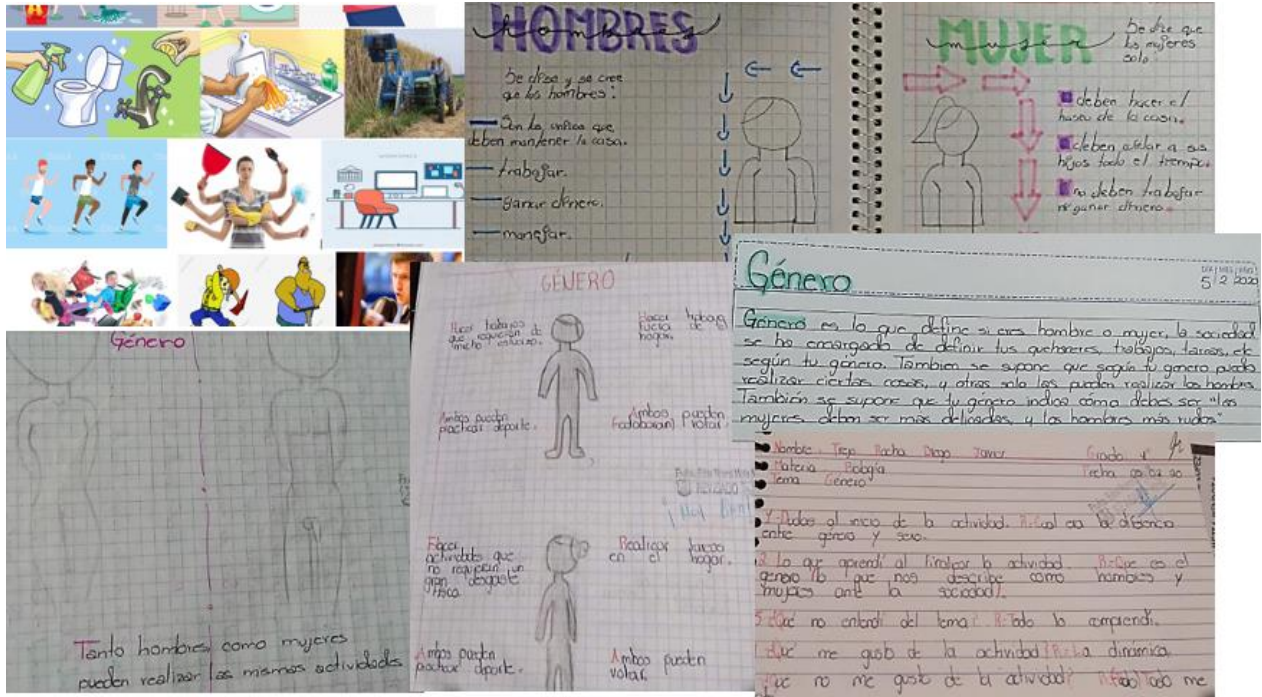 HOMBRES
hombres
Se dise y se cree
que los hombres:
Son los unicos que
deben mantener la casa.
trabajar.
ganar dinero.
manejar.
MUJER
mujer
Se dize que
las mujeres
solo:
deben hacer el
haseo de la casa.
deben cuidar a sus
hijos todo el tiempo.
no deben trabajar
ni ganar dinero.
Género
DÍA MES AÑO
5 2 2020
Género es lo que define si eres hombre o mujer, la sociedad
se ha encargado de definir tus quehaceres, trabajos, tareas, etc
según tu género. Tambien se supone que según tu genero puedes
realizar ciertas cosas, y otras solo las pueden realizar los hombres
También se supone que tu género indica cómo debes ser "las
mujeres deben ser más delicadas y los hombres más rudos"
GÉNERO
Hacer trabajos
que requieran de
mucho esfuerzo.
Hacer trabajos
fuera de
hogar.
Ambos pueden
practicar deporte.
Ambos pueden
votar.
Hacer
actividades que
no requieran un
gran desgaste
física.
Realizar tareas
en el hogar.
Ambos pueden
practicar deporte.
Ambos pueden
votar.
Género
Tanto hombres como mujeres
pueden realizar las mismas actividades
Nombre: Trejo Rocha Diego Javier Grado
Materia Biología Fecha 05 02 20
Tema Género
Dudas al inicio de la actividad. R=Cual era la diferencia
entre género y sexo.
2 Lo que aprendí al finalizar la actividad. R=Que es el
género lo que nos describe como hombres y
mujeres ante la sociedad.
¿Qué no entendí del tema? R=Todo lo comprendi.
¿Qué me gustó de la actividad? R=La dinamica.
¿Que no me gustó de la actividad? Todo me